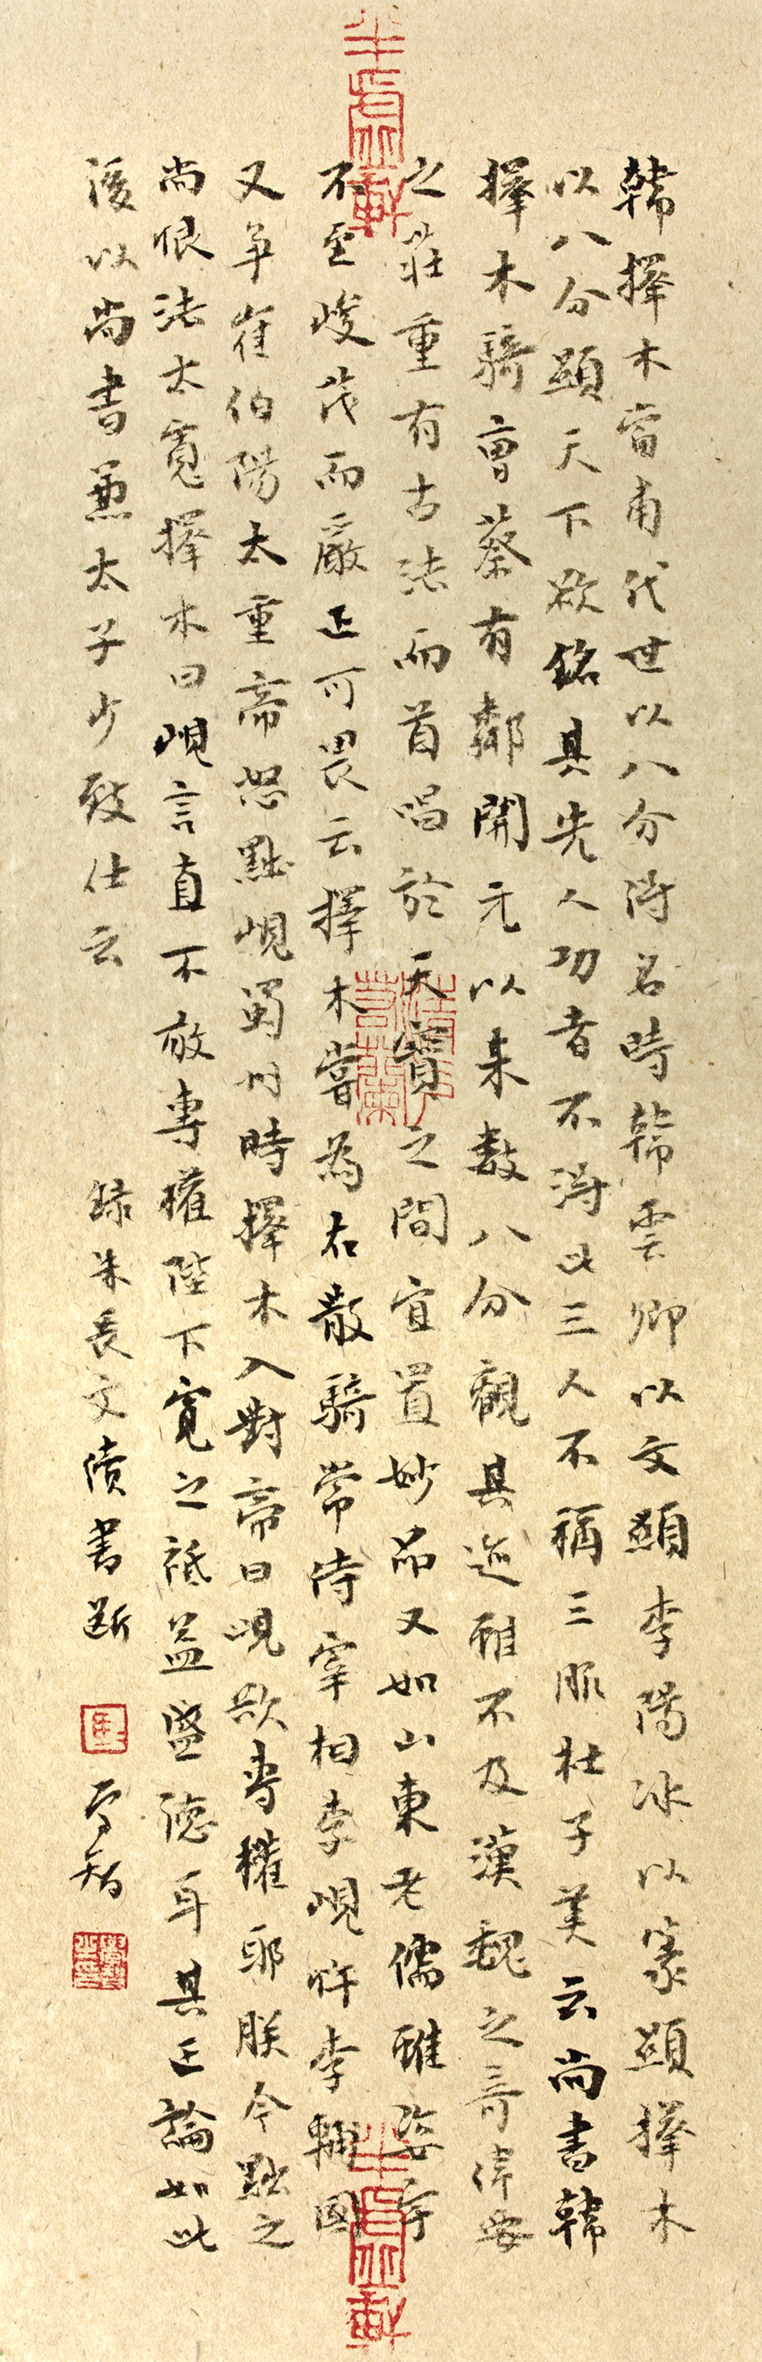 韓擇木當肅代世以八分得名時韓雲卿以文顯李陽冰以篆顯擇木
以八分顯天下欲銘其先人功者不得此三人不稱三服杜子美云尚書韓
擇木騎曹蔡有鄰開元以來數八分觀其迹雖不及漢魏之奇偉要
之莊重有古法而首唱於天寶之間宜置妙品又如山東老儒雖姿宇
不至峻茂而嚴正可畏云擇木嘗為右散騎常侍宰相李峴忤李輔國
又争崔伯陽太重帝怒黜峴蜀州時擇木入對帝曰峴欲専權耶朕今黜之
尚恨法太寬擇木曰峴言直不敢專權陛下寬之祗益盛德耳其正論如此
後以尚書兼太子少致仕云 録朱長文續書斷